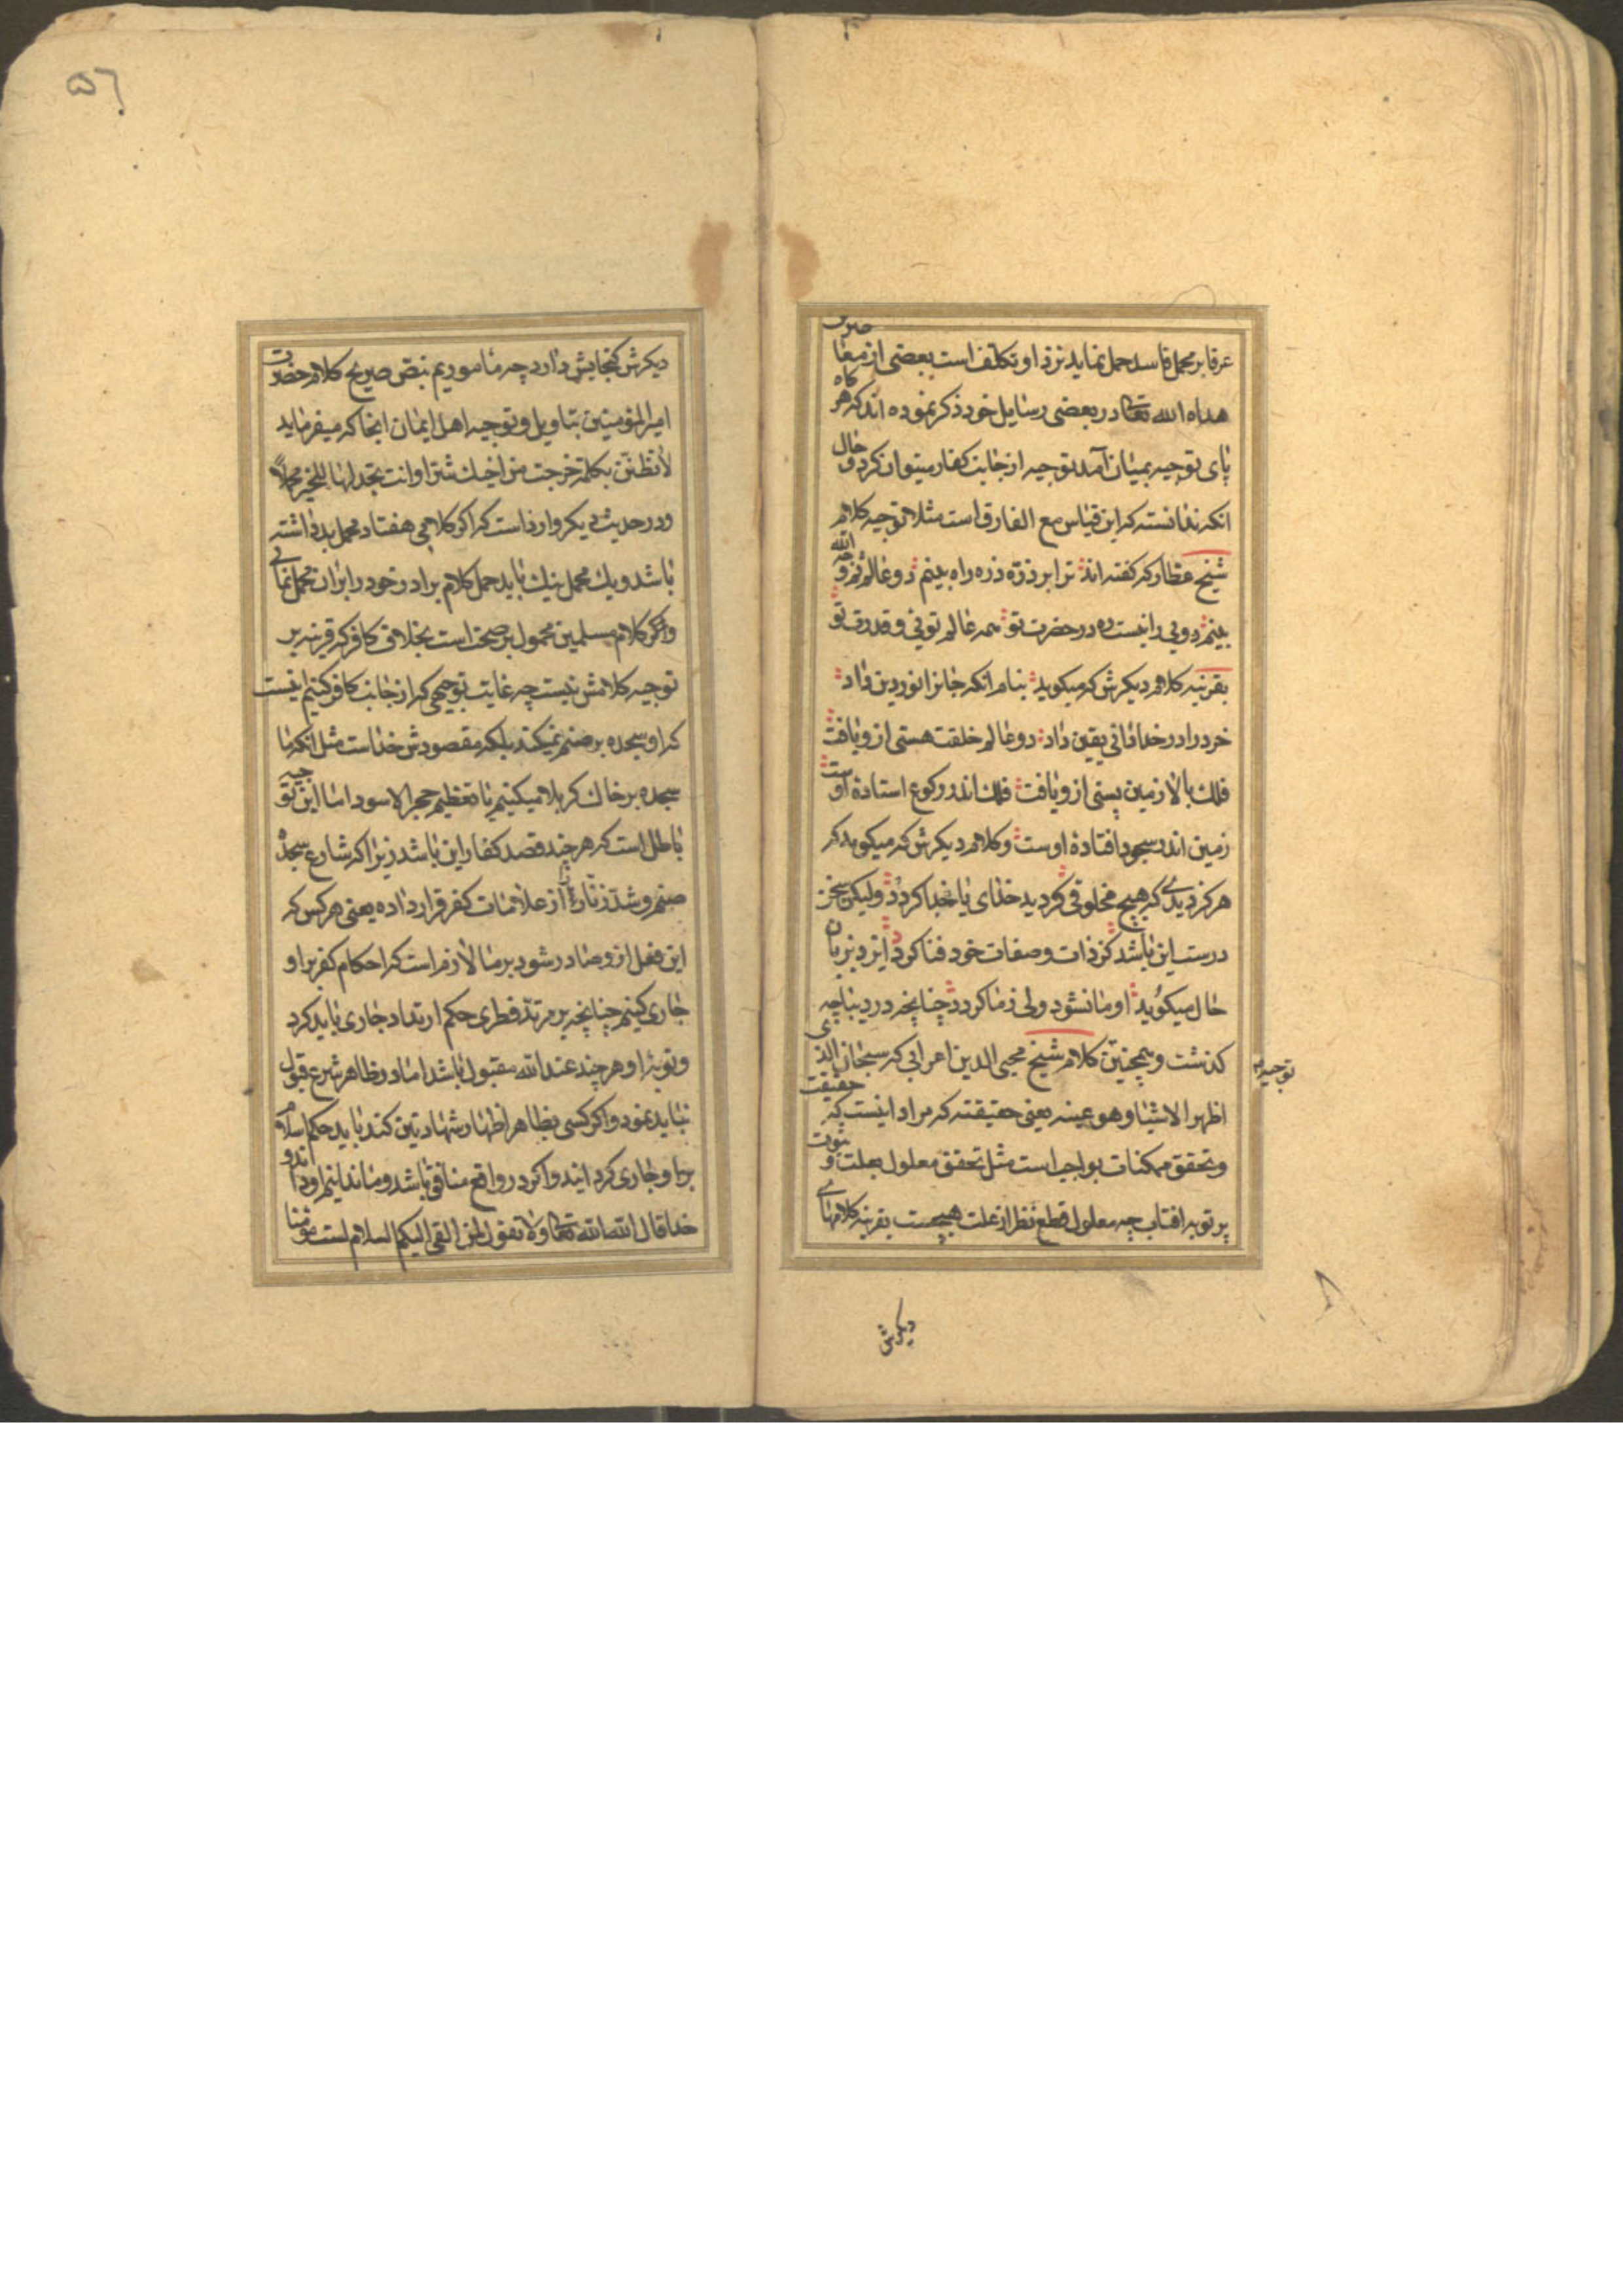 عرفا بر محمل فاسد حمل نماید نزد او تکلف است بعضی از معاصرین
هداه الله تعالی در بعضی رسایل خود ذکر نموده اند که هر کاه
پای توجیه بمیان آمد توجیه از جانب کفار میتوان کرد و حال
انکه ندانسته که این قیاس مع الفارق است مثلا توجیه کلام
شیخ عطار که کفته اند ترا بر ذره ذره راه بینم دو عالم ثم وجه الله
بینم دویی را نیست ره در حضرت تو همه عالم تویی و قدرت تو
بقرینه کلام دیکرش که میکوید بنام انکه جانرا نور دین داد
خرد را در خدادانی یقین داد دو عالم خلقت هستی ازو یافت
فلک بالا زمین پستی ازو یافت فلک اندر رکوع استاده اوست
زمین اندر سجود افتاده اوست و کلام دیکرش که میکوید که
هرکز دیدی که هیچ مخلوقی کردید خدای یا خدا کردد ولیکن سخن
درست این باشد کز ذات و صفات خود فنا کردد ایزد بزبان
حال میکوید او ما نشود ولی زما کردد چنانچه در دیباچه
کذشت و همچنین کلام شیخ محیی الدین اعرابی که سبحان الذی
توجیه
اظهر الاشیا و هو عینه یعنی حقیقته که مراد اینست که حقیقت
و تحقق ممکنات بواجب است مثل تحقق معلول بعلت و ثبوت
پرتو به افتاب چه معلول قطع نظر از علت هیچست بقرینه کلامهای
دیکرش
۵٦
دیکرش کنجایش دارد چه ما ماموریم بنص صریح کلام حضرت
امیر المؤمنین بتاویل و توجیه اهل ایمان انجا که میفرماید
لا تظنن بکلمة خرجت من اخیک شرا و انت تجد لها للخیر محملا
و در حدیث دیکر وارد است که اکر کلامی هفتاد محمل بد داشته
باشد و یک محمل نیک باید حمل کلام برادر خود را بران محمل نمائی
و اکثر کلام مسلمین محمول بر صحت است بخلاف کافر که قرینه بر
توجیه کلامش نیست چه غایت توجیهی که از جانب کافر کنیم اینست
که او سجده بر صنم نمیکند بلکه مقصودش خداست مثل انکه ما
سجده بر خاک کربلا میکنیم یا تعظیم حجر الاسود اما این توجیه
باطل است که هر چند قصد کفار این باشد زیرا که شارع سجده
صنم و شدّ زنار را از علامات کفر قرار داده یعنی هر کس که
این فعل ازو صادر شود بر ما لازم است که احکام کفر بر او
جاری کینم چنانچه بر مرتد فطری حکم ارتداد جاری باید کرد
و توبه او هر چند عند الله مقبول باشد اما در ظاهر شرع قبول
نباید نمود و اکر کسی بظاهر اظهار شهادتین کند باید حکم اسلام
بر او جاری کردانید و اکر در واقع منافق باشد و ما ندانیم او داند و
خدا قال الله تعالی و لا تقولوا لمن القی الیکم السلام لست مؤمنا